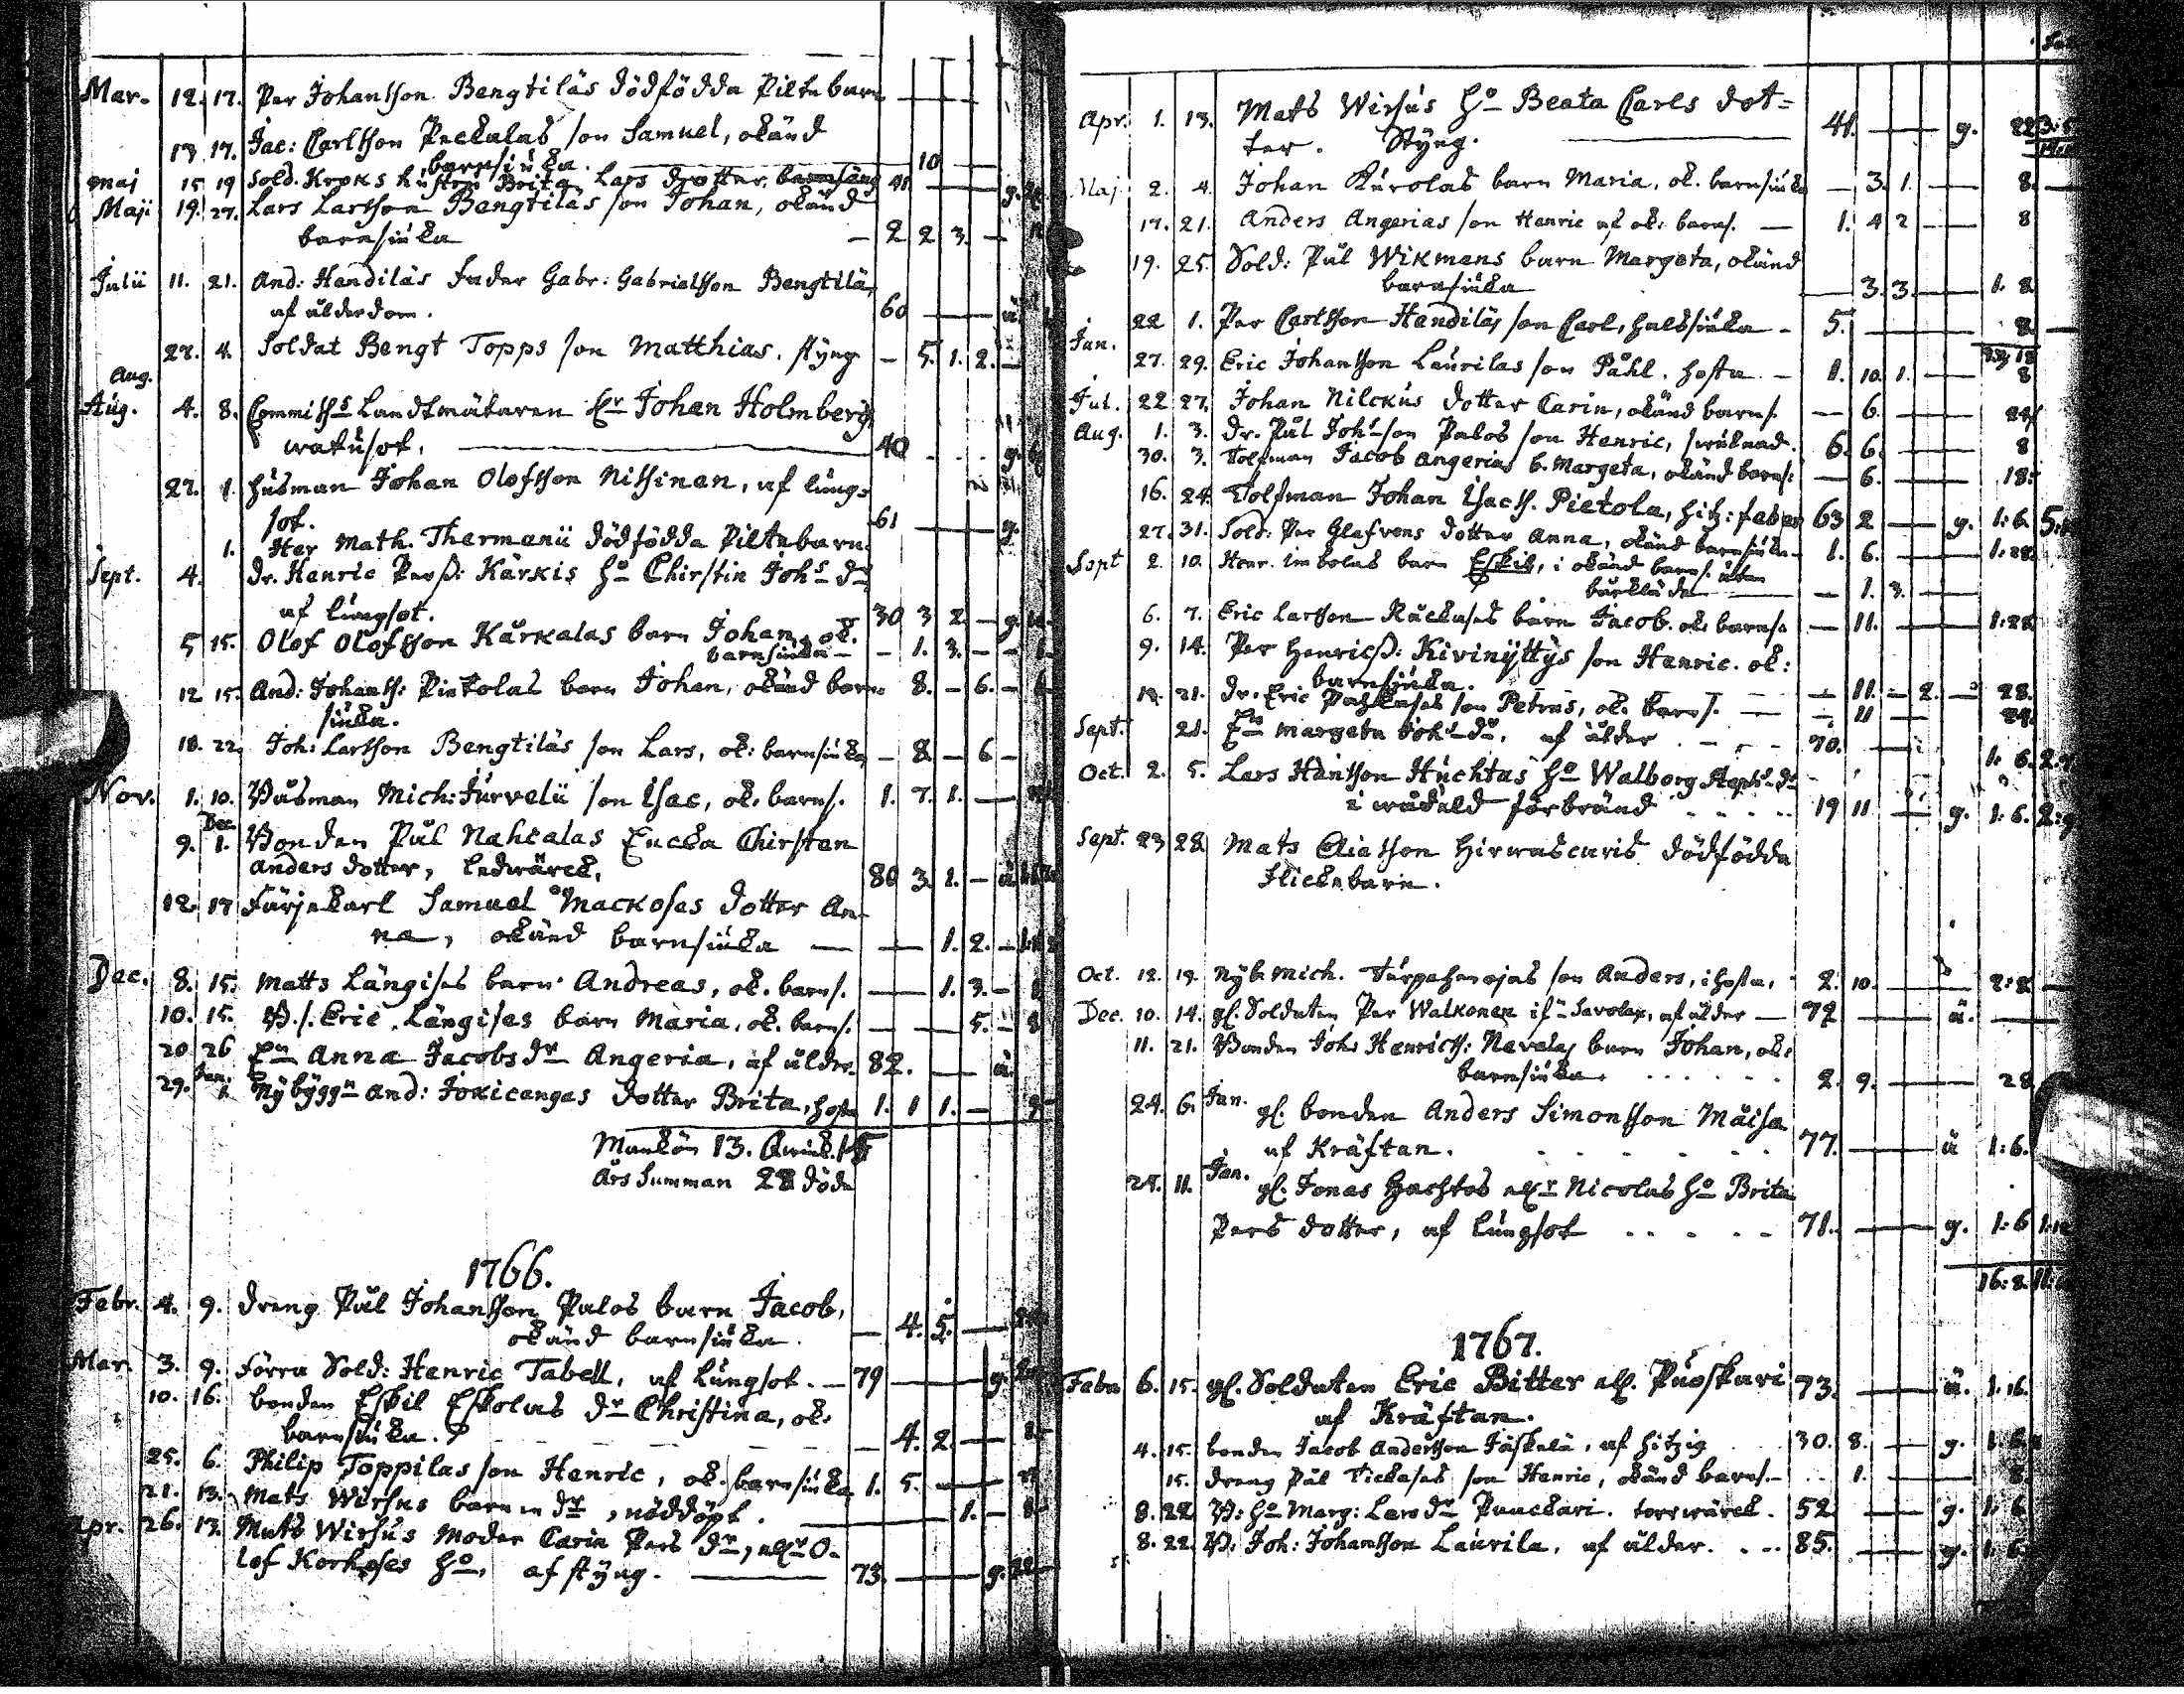 Mar. 12. 17. Per Johansson Bengtiläs dödfödda Piltebarn
13 17. Jac: Carlsson Peckalas son Samuel, okänd
barnsiuka. 10
maj 15 19 Sold. Kroks hustru Brita Lars dotter, barnsäng 41 g.
Maji 19. 27. Lars Larsson Bengtiläs son Johan, okänd
barnsiuka 2 2 3.
Julii 11. 21. And: Handiläs Fader Gabr: Gabrielsson Bengtilä,
af ålderdom. 60 ä.
27. 4. Soldat Bengt Topps son Matthias. styng 5. 1. 2.
Aug.
Aug. 4. 8. Commiss: Landtmätaren Hr Johan Holmberg
watusot. 40 g.
27. 1. husman Johan Olofsson Nissinen, af lung-
sot. 61 g.
1. Her Math. Thermenii dödfödda Piltebarn
Sept. 4. dr. Henric Perss: Kärkis ho Chirstin Johs dr
af lungsot. 30 3 2. g.
5 15. Olof Olofsson Kärkalas barn Johan, ok.
barnsiuka 1. 3.
12 15. And: Johanss: Pietolas barn Johan, okänd barn-
siuka. 8. 6.
18. 22. Joh: Larsson Bengtiläs son Lars, ok: barnsiuka 8 6
Nov. 1. 10. Båsman Mich: Jurvelii son Isac, ok. barns. 1. 7. 1.
Dec.
9. 1. Bonden Pål Nahkalas Encka Chirsten
Anders dotter, Ledwärck. 80 3. 1. ä.
12. 17 Färjekarl Samuel Mackoses dotter An-
na, okänd barnsiuka 1. 2.
Dec. 8. 15. Matts Längises barn Andreas, ok. barns. 1. 3.
10. 15. B.s. Eric Längises barn Maria, ok. barns. 5. 8
20 26 En Anna Jacobs dr Angeria, af ålder. 82. ä.
Jan.
29. 1. Nybyggn And: Jokicangas dotter Brita, hosta 1. 1 1.
Mankön 13. Qwink. 15
Års Summan 28 döda
1766.
Febr. 4. 9. dreng Pål Johansson Palos barn Jacob,
okänd barnsiuka. 4. 5.
Mar. 3. 9. Förra Sold: Henric Tabell, af lungsot. 79 g.
10. 16. bonden Eskil Eskolas dr Christina, ok.
barnsiuka. 4. 2 8.
25. 6. Philip Toppilas son Henric, ok. barnsiuka 1. 5.
21. 13. Mats Wirsus barn en dr, nöddöpt. 1. 8
Apr. 26. 13. Mats Wirsus Moder Carin Pers dr, O-
lof Korhoses ho, af styng. 73. g. 22
Apr. 1. 13. Mats Wirsus ho Beata Carls dot=
ter. Styng. 41. g. 22
Maj 2. 4. Johan Kurolas barn Maria, ok. barnsiuka 3. 1. 8.
17. 21. Anders Angerias son Henric af ok: barns. 1. 4 2 8
19. 25. Sold: Pål Wikmans barn Margeta, okänd
barnsiuka 3. 3. 1. 8.
Jun. 22 1. Per Carlsson Handiläs son Carl, halssiuka 5. 8.
27. 29. Eric Johansson Laurilas son Påhl. hosta 1. 10. 1. 8
Jul. 22 27. Johan Nilckus dotter Carin, okänd barns. 6.
Aug. 1. 3. dr. Pål Johsson Palos son Henric, 6. 6. 8
30. 3. Tolfman Jacob Angerias b. Margeta, okänd barns: 6. 18:
16. 24. Tolfman Johan Isacs. Pietola, hitz: feber 63 2 g. 1:6.
27. 31. Sold: Per Glafvens dotter Anna, okänd barnsiuka 1. 6.
Sept 2. 10. Henr. Limbolas barn Eskil, i okänd barns. utan
1. 3.
6. 7. Eric Larsson Räckases barn Jacob. ok. barns. 11. 1:28
9. 14. Per Henricss: Kivinyttys son Henric. ok:
barnsiuka. 11. 2. 28.
19. 21. dr. Eric son Petrus, ok. barns. 11
Sept. 21. En Margeta Johsdr. af ålder 70.
Oct. 2. 5. Lars Hansson Huchtas ho Walborg Stephs dr
i wådeld förbränd 19 11 g. 1:6.
Sept. 23 28 Mats Hirwascaris dödfödda
Flickebarn.
Oct. 12. 19. Nyb. Mich. Turpahanojas son Anders, i hosta, 2. 10. 2:8.
Dec. 10. 14. gl. Soldaten Per Walkonen ifn Savolax, af ålder 72 ä.
11. 21. Bonden Joh: Henricss: Nevalas barn Johan, ok:
barnsiuka. 2. 9. 28
24. 6. Jan. gl. bonden Anders Simonsson Mäisa
af Kräftan. 77. ä 1:6.
25. 11. Jan. gl. Jonas Nicolas ho Brita
Pers dotter, af lungsot 71. g. 1:6
16:8.
1767.
Febr. 6. 15. gl. Soldaten Eric Bitter all. Puoskari 73. ä. 1.16.
af Kräftan.
4. 15. bonden Jacob Andersson Jäskelä, af hitzig 30. 8. g.
15. dreng Pål Tickases son Henric, okänd barns. 1. 8.
8. 22. B: ho Marg: Lars dr Puuckari. torrwärck. 52 g. 1:6
8. 22. B. Joh: Johansson Laurila. af ålder. 85. g. 1:6